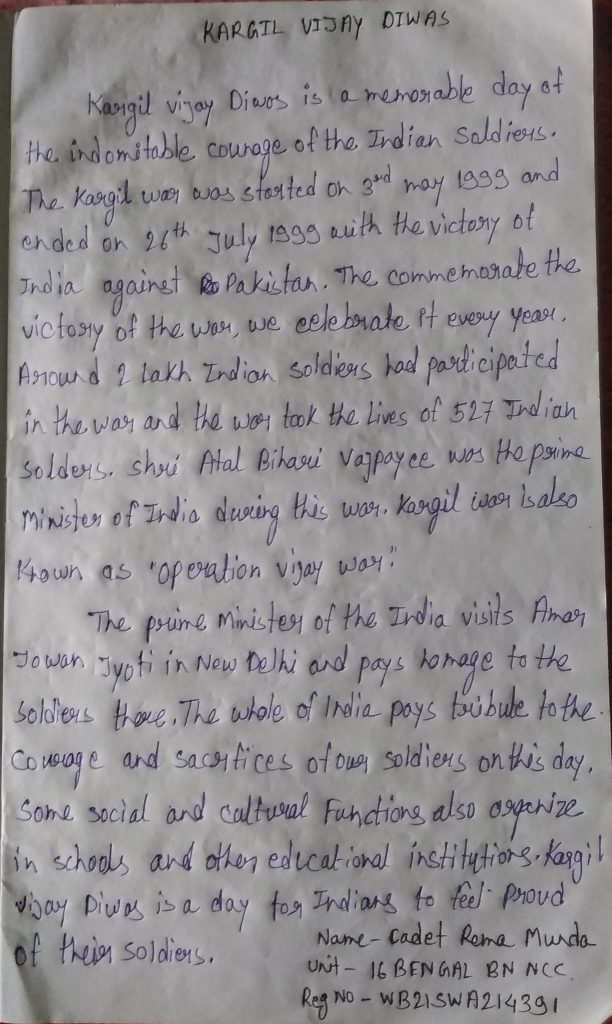 KARGIL VIJAY DIWAS
Kargil vijay Diwas is a memorable day of
the indomitable courage of the Indian Soldiers.
The Kargil war was started on 3rd may 1999 and
ended on 26th July 1999 with the victory of
India against Pakistan. The commemorate the
victory of the war, we celebrate it every year.
Around 2 Lakh Indian soldiers had participated
in the war and the war took the Lives of 527 Indian
Solders. Shri Atal Bihari Vajpayee was the prime
Minister of India during this war. Kargil war is also
Known as "operation vijay war."
The prime Minister of the India visits Amar
Jowan Jyoti in New Delhi and pays homage to the
Soldiers there. The whole of India pays tribute to the
Courage and sacrifices of our soldiers on this day.
Some social and cultural Functions also organize
in schools and other educational institutions. Kargil
vijay Diwas is a day for Indians to feel proud
of their soldiers.
Name - Cadet Rema Munda
Unit - 16 BENGAL BN NCC.
Reg NO - WB21SWA214391